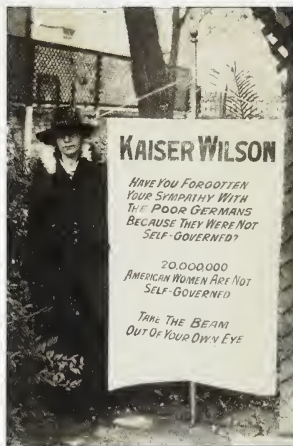 KAISER WILSON
HAVE YOU FORGOTTEN
YOUR SYMPATHY WITH
THE POOR GERMANS
BECAUSE THEY WERE NOT
SELF-GOVERNED?
20,000,000
AMERICAN WOMEN ARE NOT
SELF-GOVERNED
TAKE THE BEAM
OUT OF YOUR OWN EYE